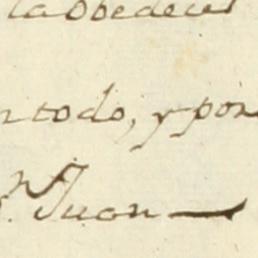 la obedecer
n todo, y por
n. Juan